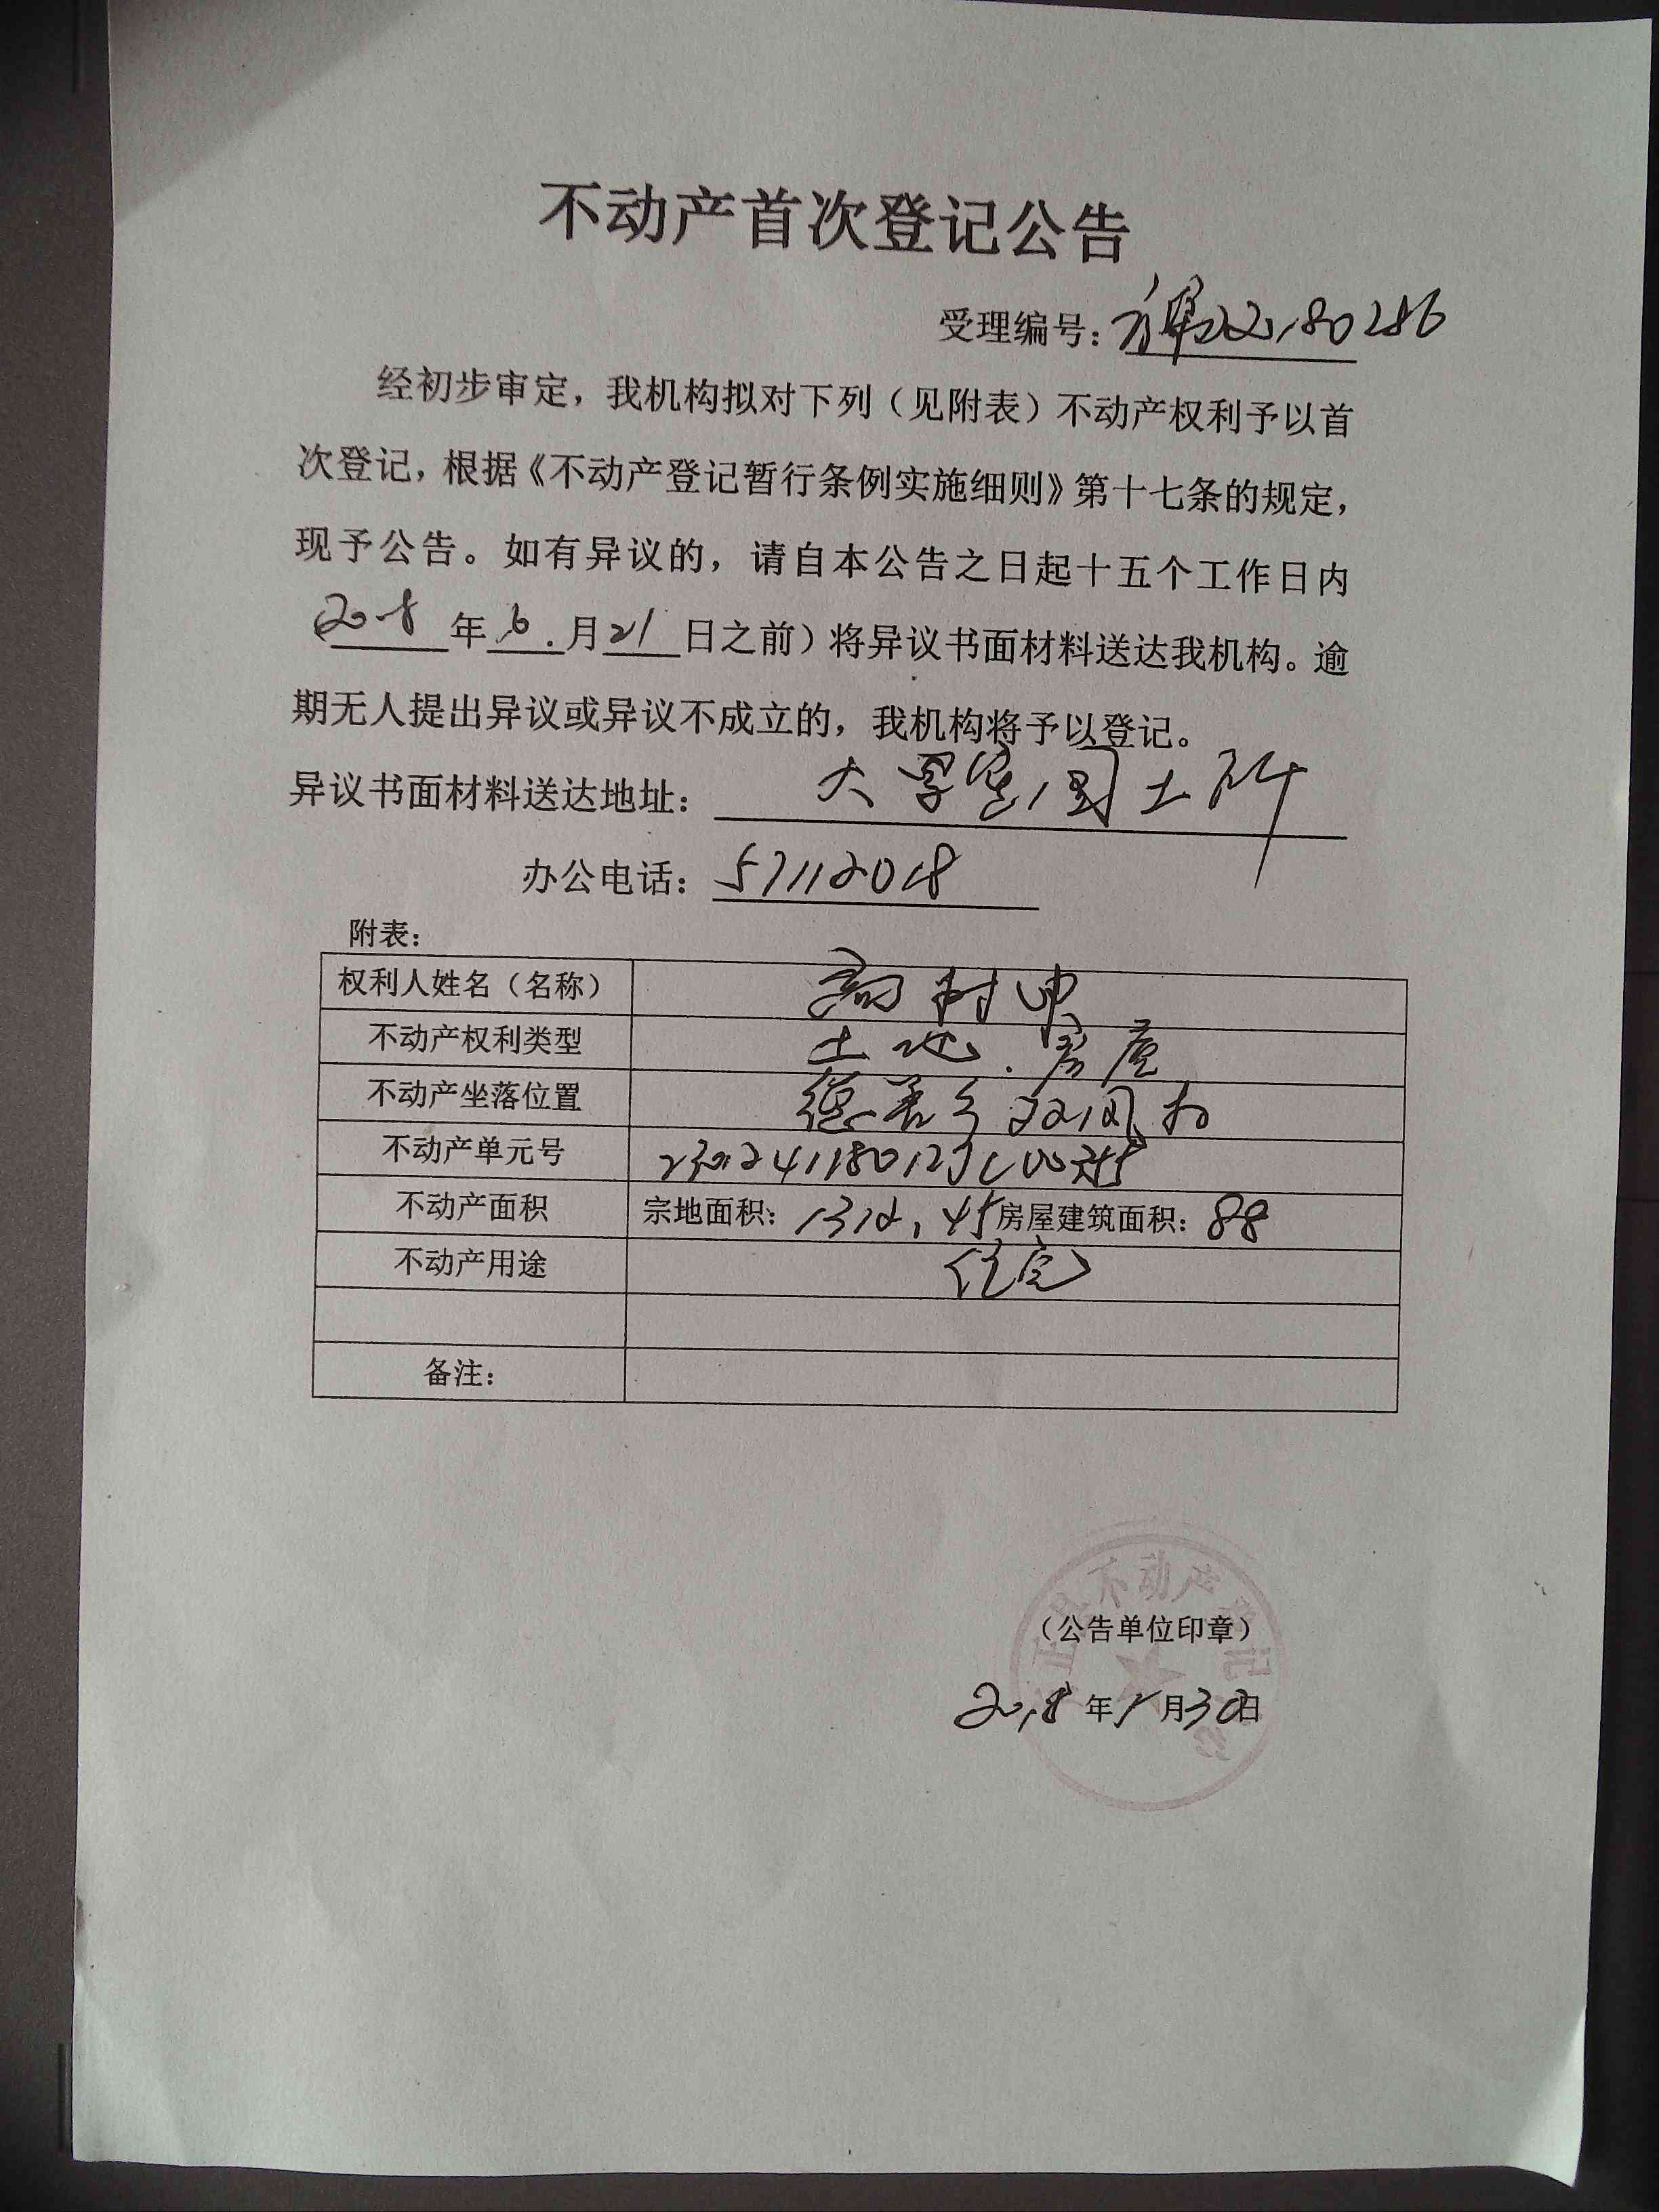 不动产首次登记公告
受理编号：180286
经初步审定，我机构拟对下列（见附表）不动产权利予以首
次登记，根据《不动产登记暂行条例实施细则》第十七条的规定，
现予公告。如有异议的，请自本公告之日起十五个工作日内
（2018年6月21日之前）将异议书面材料送达我机构。逾
期无人提出异议或异议不成立的，我机构将予以登记。
异议书面材料送达地址：国土所
办公电话：57112018
附表：
权利人姓名（名称）
不动产权利类型 土地.房屋
不动产坐落位置 德善乡双凤村
不动产单元号
不动产面积 宗地面积：1312.45房屋建筑面积：88
不动产用途 住宅
备注：
不动产登记
（公告单位印章）
2018年5月30日